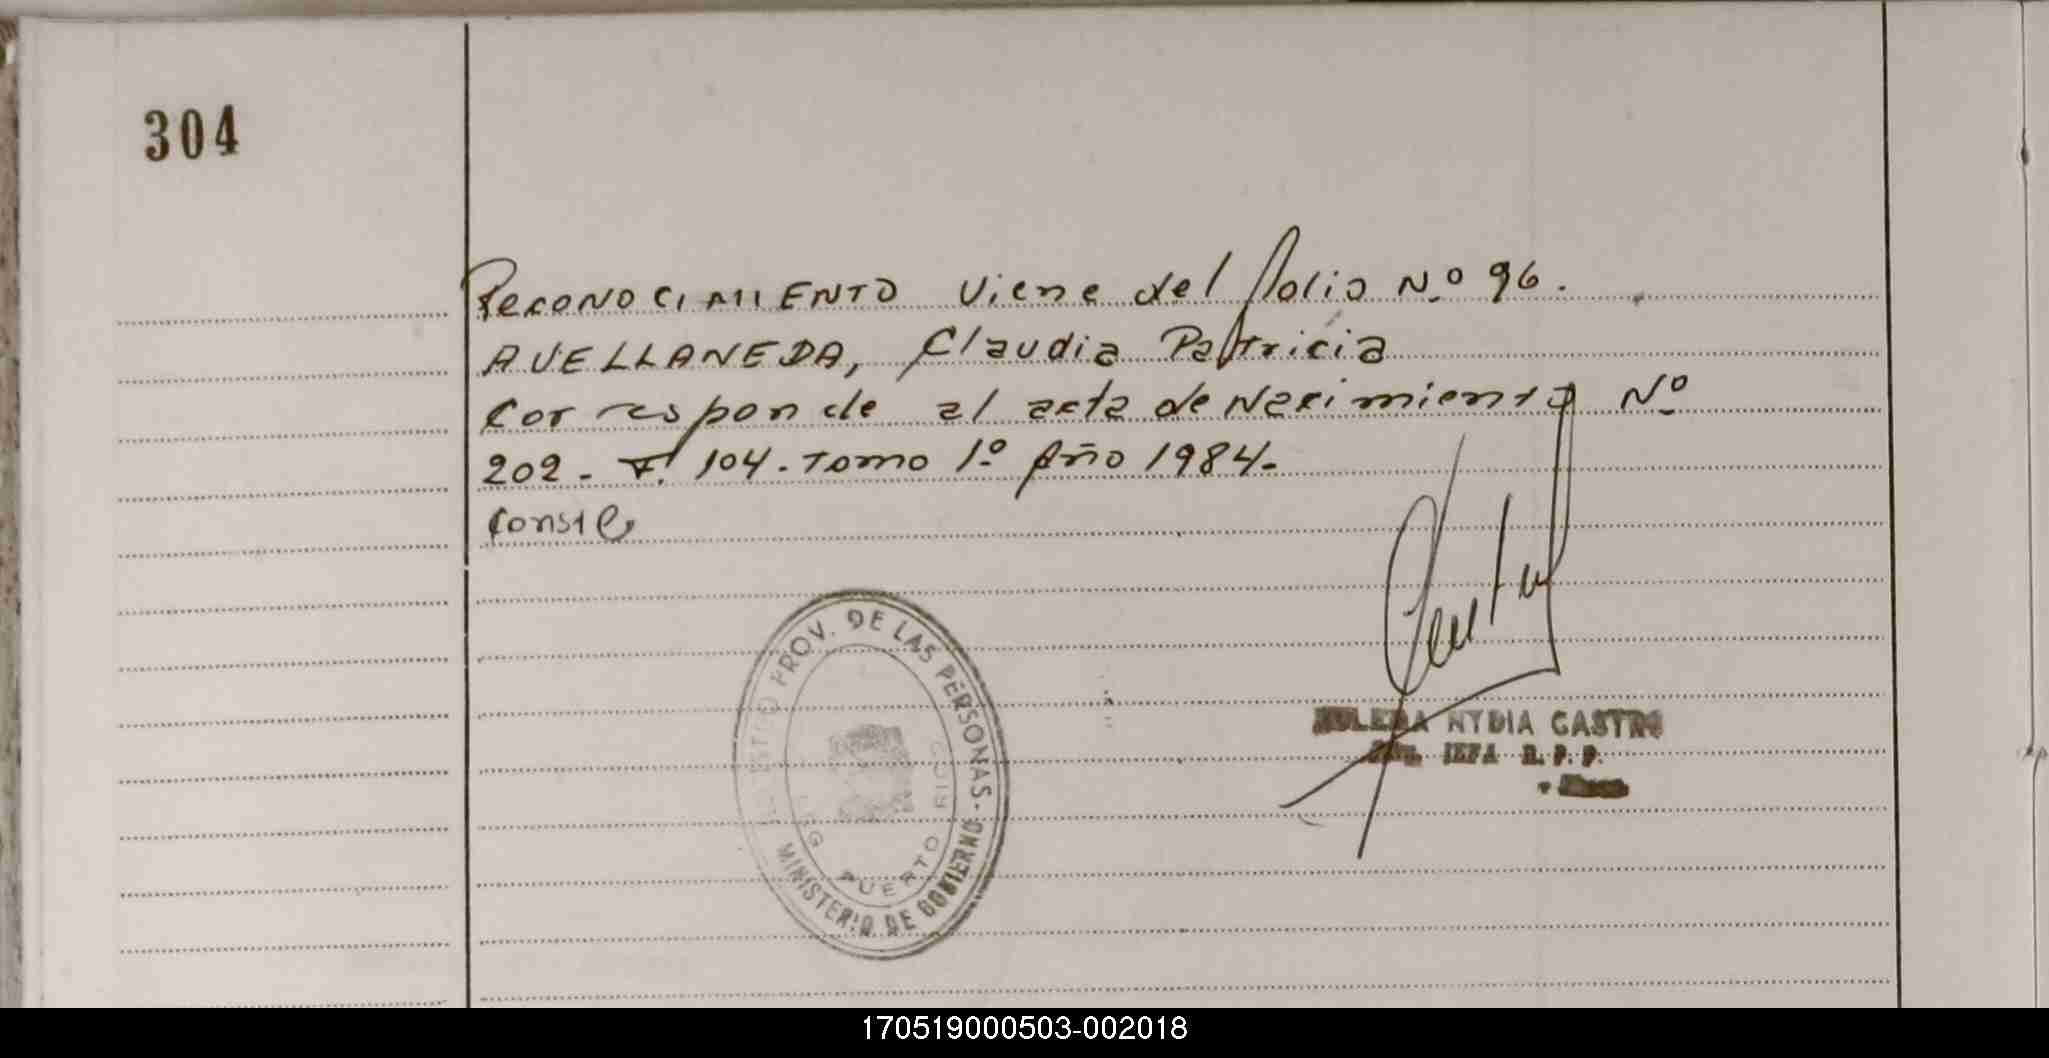 304
Reconocimiento viene del folio N.º 96.
AVELLANEDA, Claudia Patricia
Corresponde al acta de Nacimiento Nº
202 - F. 104 - Tomo 1.º Año 1984.-
Conste,
PROV. DE LAS PERSONAS.
MINISTERIO DE GOBIERNO
PUERTO RICO
NYDIA CASTRO
JEFA R. P. P.
170519000503-002018